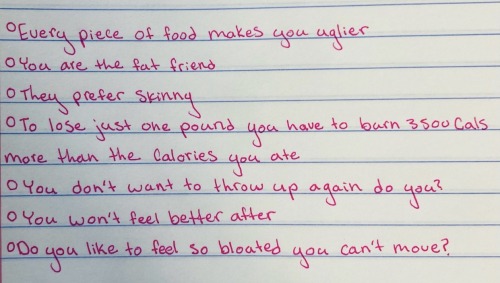 °Every piece of food makes you uglier
°You are the fat friend
°They prefer skinny
°To lose just one pound you have to burn 3500 cals
more than the calories you ate
°You don't want to throw up again do you?
°You won't feel better after
°Do you like to feel so bloated you can't move?